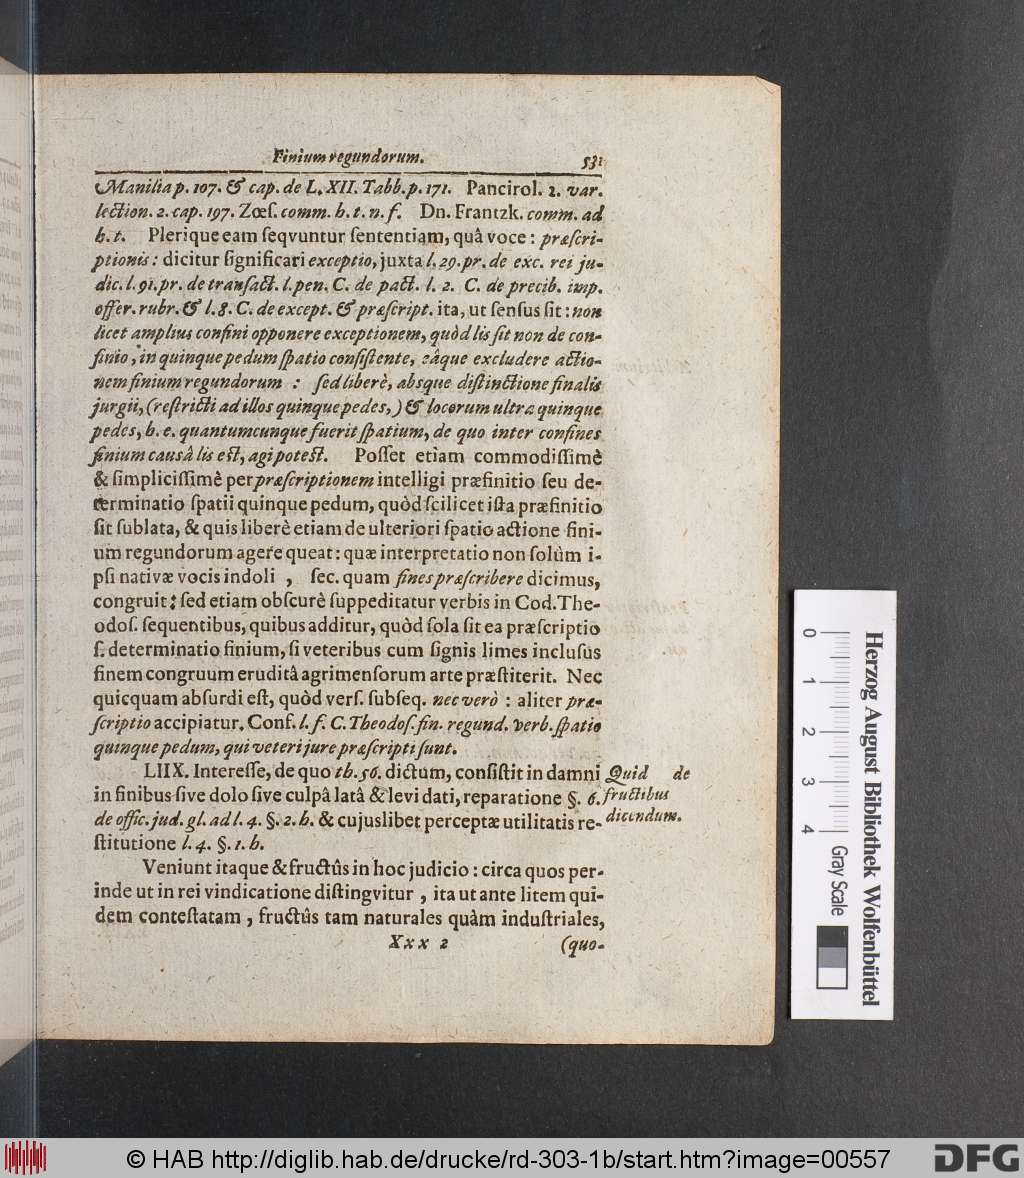 Finium regundorum. 531
Manilia p. 107. & cap. de L. XII. Tabb. p. 171. Pancirol. 2. var.
lection. 2. cap. 197. Zœſ. comm. h. t. n. f. Dn. Frantzk. comm. ad
h. t. Plerique eam ſeqvuntur ſententiam, quâ voce: præſcri-
ptionis: dicitur ſignificari exceptio, juxta l. 29. pr. de exc. rei ju-
dic. l. 91. pr. de tranſact. l. pen. C. de pact. l. 2. C. de precib. imp.
offer. rubr. & l. 8. C. de except. & præſcript. ita, ut ſenſus ſit: non
licet amplius confini opponere exceptionem, quòd lis ſit non de con-
finio, in quinque pedum ſpatio conſiſtente, eâque excludere actio-
nem finium regundorum : ſed liberè, absque diſtinctione finalis
jurgii, (reſtricti ad illos quinque pedes,) & locorum ultra quinque
pedes, h. e. quantumcunque fuerit ſpatium, de quo inter confines
finium causâ lis eſt, agi poteſt. Poſſet etiam commodiſſimè
& ſimpliciſſimè per præſcriptionem intelligi præfinitio ſeu de-
terminatio ſpatii quinque pedum, quòd ſcilicet iſta præfinitio
ſit ſublata, & quis liberè etiam de ulteriori ſpatio actione fini-
um regundorum agere queat: quæ interpretatio non ſolùm i-
pſi nativæ vocis indoli , ſec. quam fines præſcribere dicimus,
congruit: ſed etiam obſcurè ſuppeditatur verbis in Cod. The-
odoſ. ſequentibus, quibus additur, quòd ſola ſit ea præſcriptio
ſ. determinatio finium, ſi veteribus cum ſignis limes incluſus
finem congruum eruditâ agrimenſorum arte præſtiterit. Nec
quicquam abſurdi eſt, quòd verſ. ſubſeq. nec verò : aliter præ-
ſcriptio accipiatur. Conf. l. f. C. Theodoſ. fin. regund. verb. ſpatio
quinque pedum, qui veteri jure præſcripti ſunt.
LIIX. Intereſſe, de quo th. 56. dictum, conſiſtit in damni
Quid de
in finibus ſive dolo ſive culpâ latâ & levi dati, reparatione §. 6.
fructibus
de offic. jud. gl. ad l. 4. §. 2. h. & cujuslibet perceptæ utilitatis re-
dicendum.
ſtitutione l. 4. §. 1. h.
Veniunt itaque & fructûs in hoc judicio : circa quos per-
inde ut in rei vindicatione diſtingvitur , ita ut ante litem qui-
dem conteſtatam , fructûs tam naturales quàm induſtriales,
Xxx 2 (quo-
0 1 2 3 4
Gray Scale
Herzog August Bibliothek Wolfenbüttel
© HAB http://diglib.hab.de/drucke/rd-303-1b/start.htm?image=00557
DFG